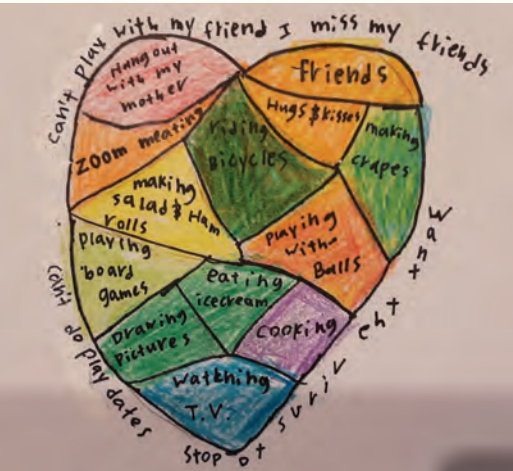 can't play with my friend I miss my friends
Hangout
with my
mother
friends
Zoom meating
riding
Bicycles
Hugs & kisses
making
crapes
making
salad & Ham
rolls
playing
with
Balls
playing
board
games
eating
icecream
Drawing
Pictures
cooking
Watching
T.V.
can't do play dates
Want
eht surivr ot stop